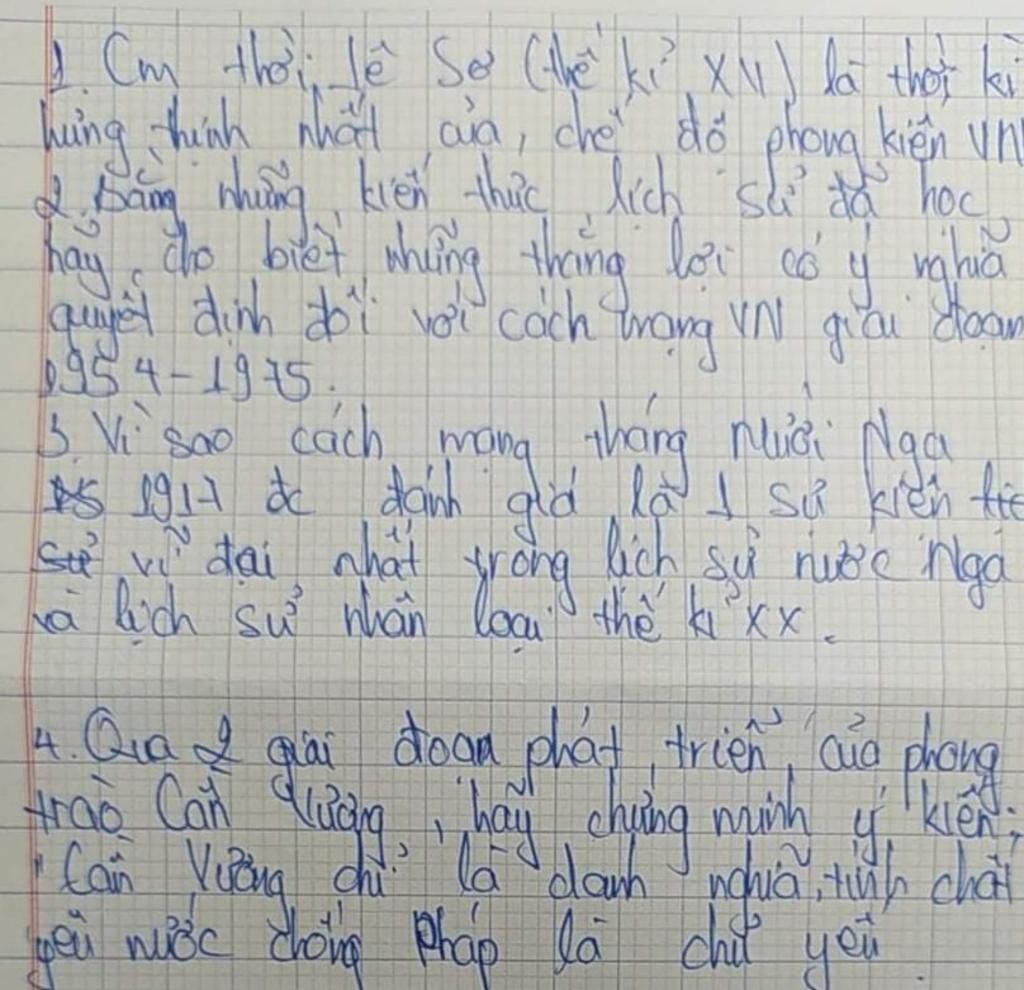 1. Cm thời Lê Sơ (thế kỉ XV) là thời kì
hưng thịnh nhất của chế độ phong kiến VN
2. Bằng những kiến thức lịch sử đã học,
hãy cho biết những thắng lợi có ý nghĩa
quyết định đối với cách mạng VN giai đoạn
1954-1975.
3. Vì sao cách mạng tháng Mười Nga
1917 đc đánh giá là 1 sự kiện
vĩ đại nhất trong lịch sử nước Nga
và lịch sử nhân loại thế kỉ XX.
4. Qua 2 giai đoạn phát triển của phong
trào Cần Vương, hãy chứng minh ý kiến:
"Cần Vương chỉ là danh nghĩa, tính chất
yêu nước chống Pháp là chủ yếu